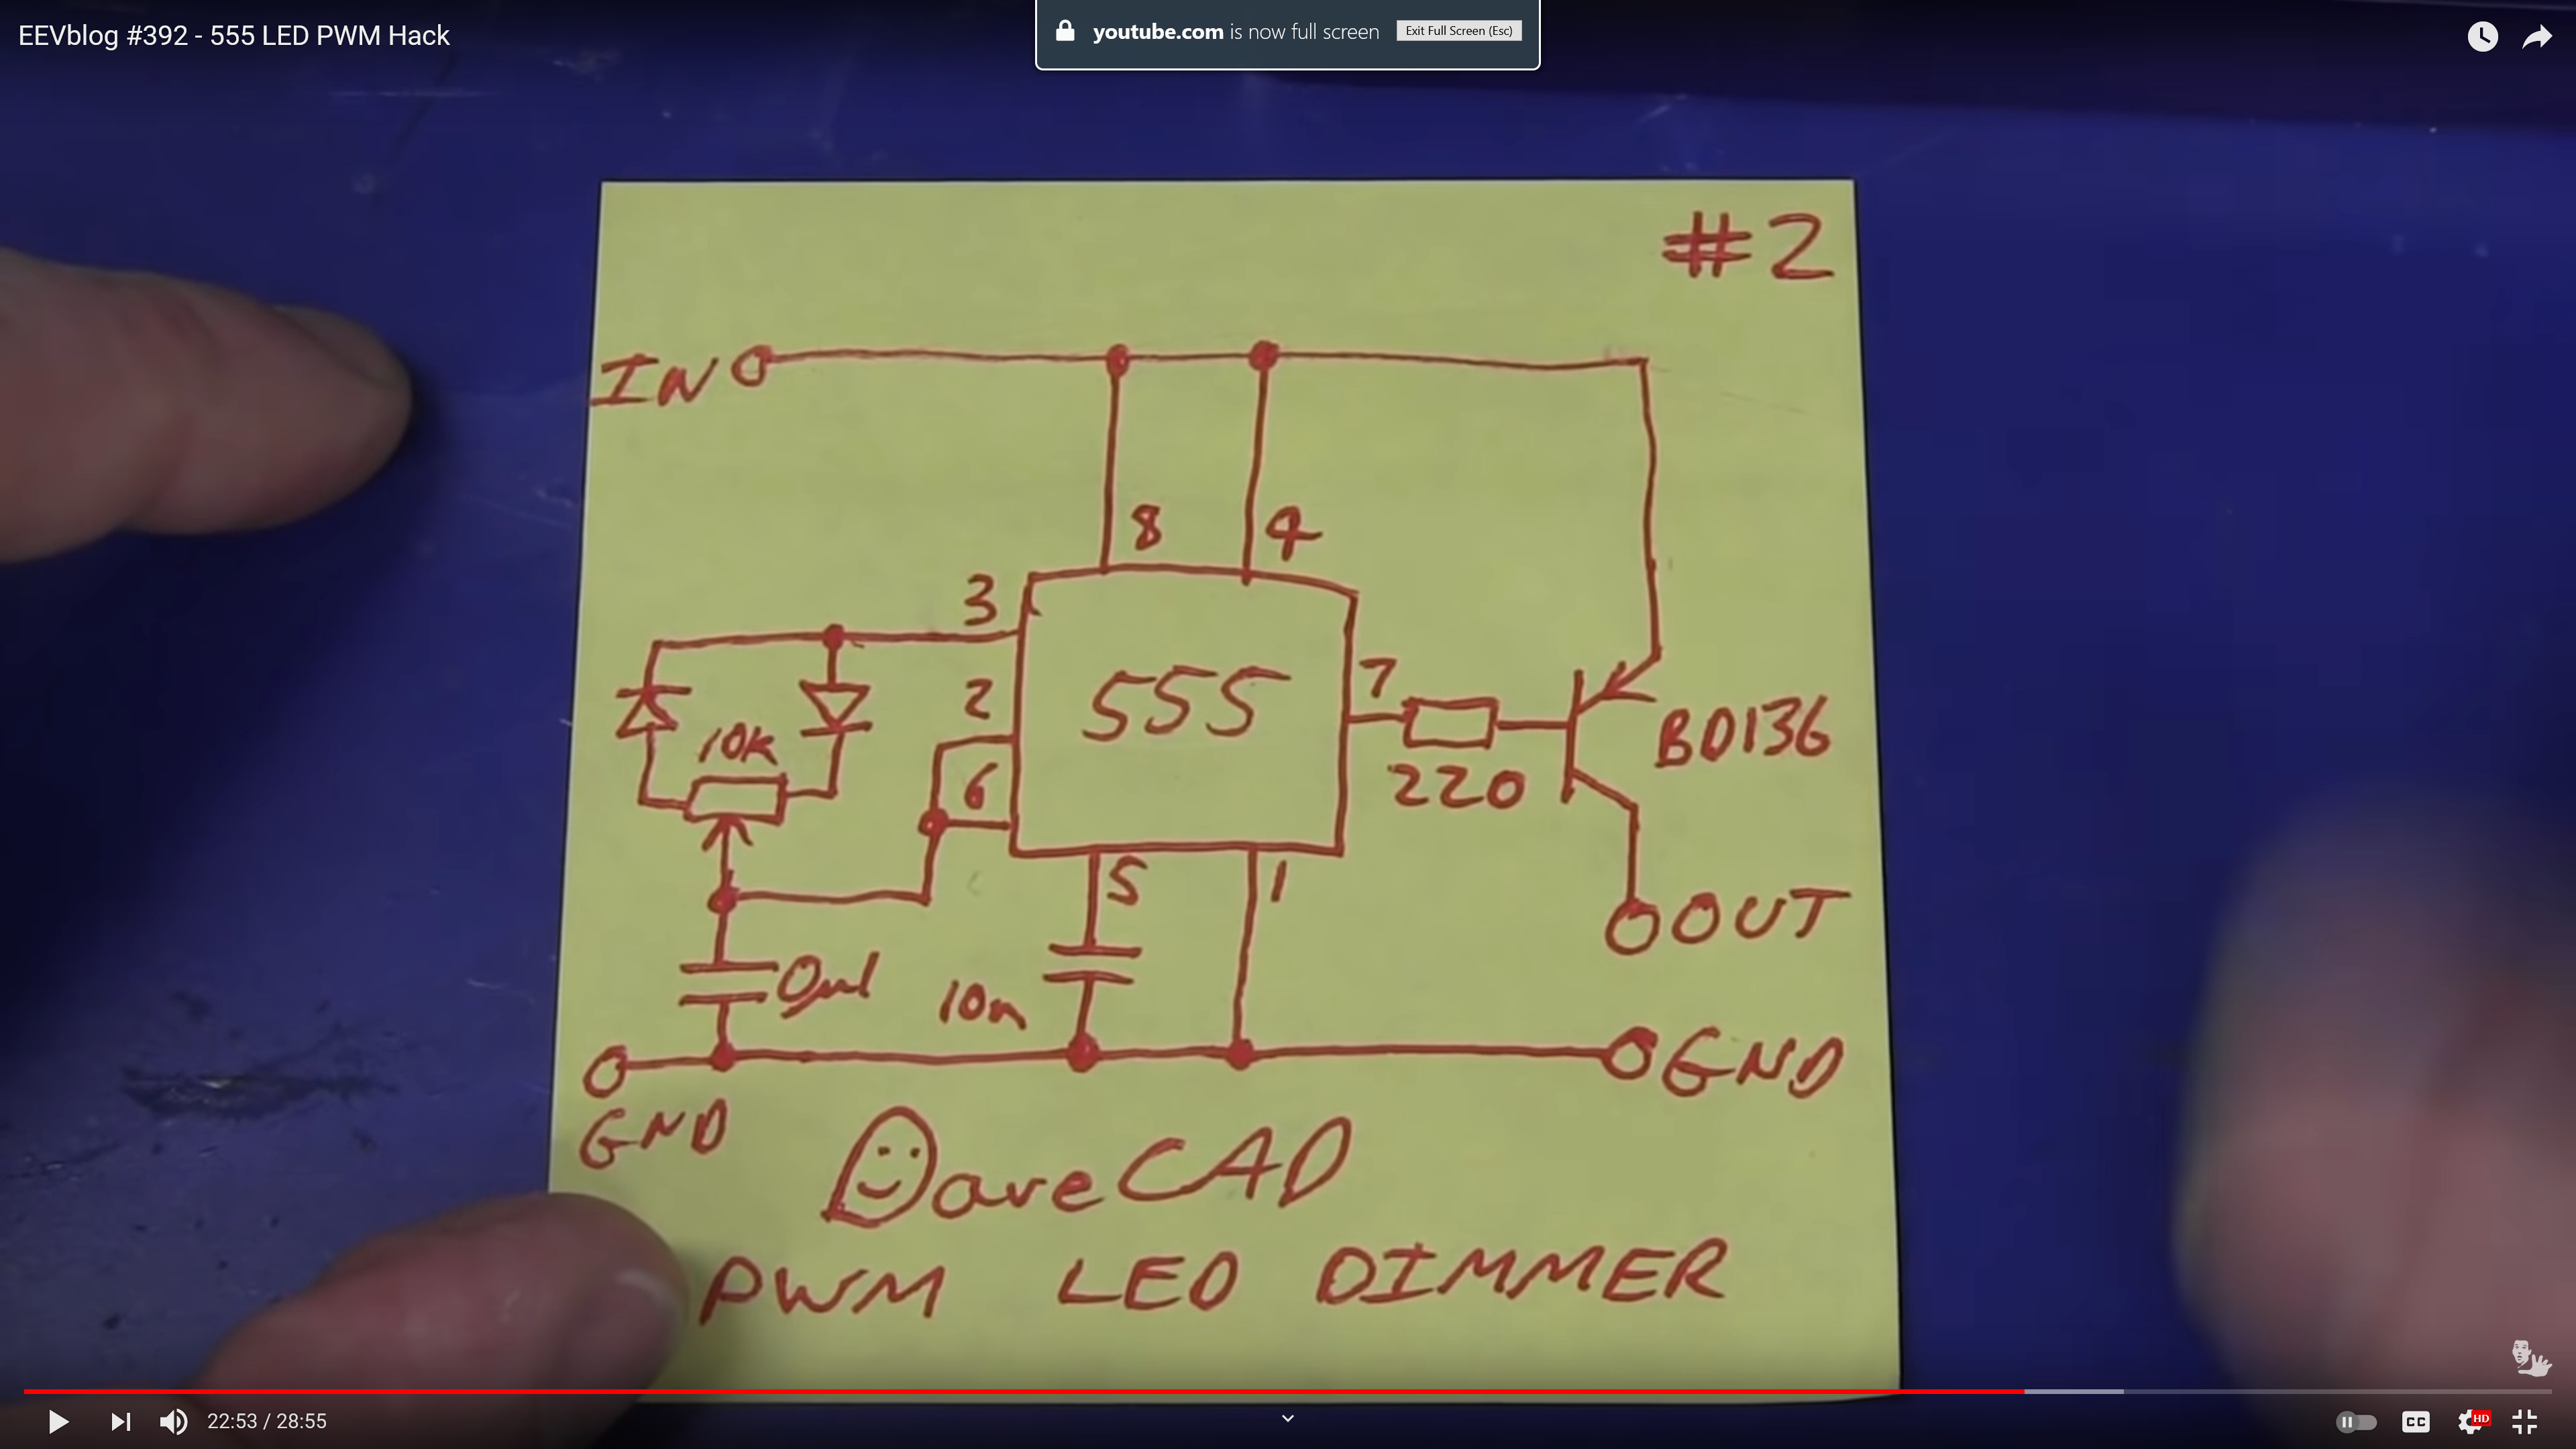 EEVblog #392 - 555 LED PWM Hack
youtube.com is now full screen
Exit Full Screen (Esc)
#2
IN
8
4
3
2
6
555
7
10k
220
BD136
5
1
OUT
0μ1
10n
GND
GND
DaveCAD
PWM LED DIMMER
22:53 / 28:55
CC
HD